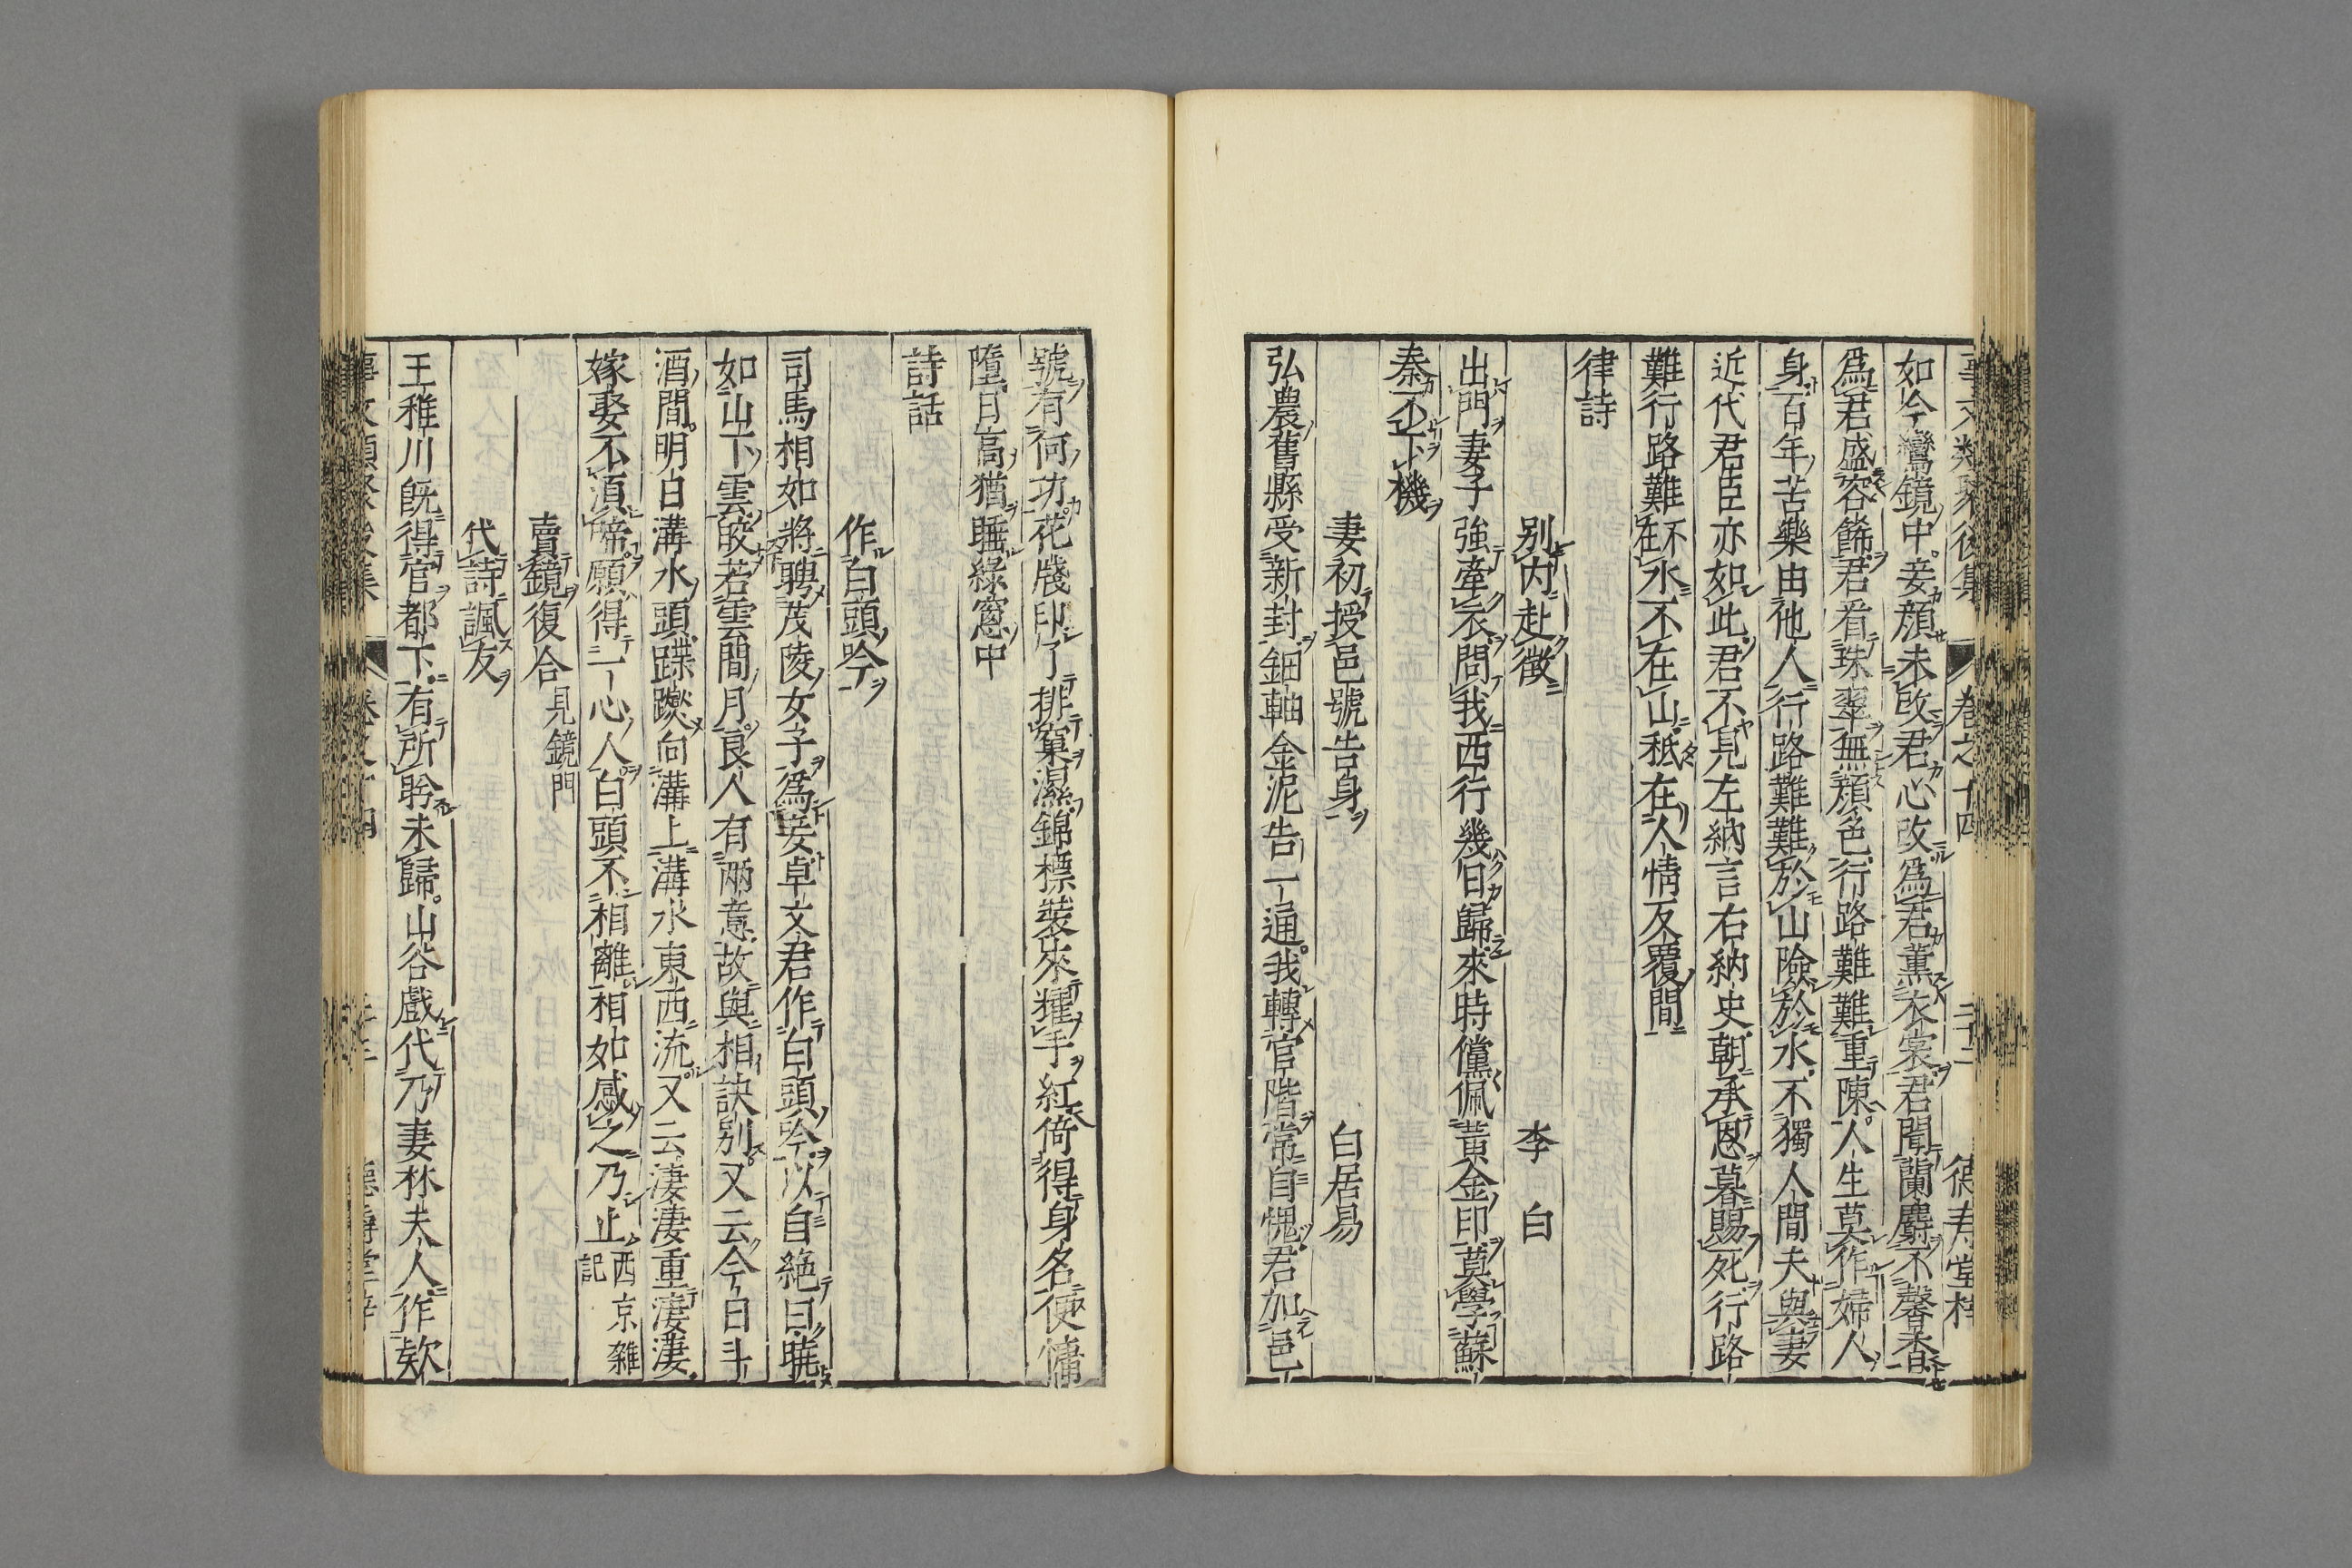 事文類聚後集 卷之十四 二十二 德寿堂梓
如今鸞鏡中妾顔未改君心改爲君薰衣裳君聞蘭麝不馨香
爲君盛容餙君看珠翠無顔色行路難難重陳人生莫作婦人
身百年苦樂由他人行路難難於山險於水不獨人間夫與妻
近代君臣亦如此君不見左納言右納史朝承恩暮賜死行路
難行路難不在水不在山秪在人情反覆間
律詩
別内赴徵 李白
出門妻子強牽衣問我西行幾日歸來時儻佩黃金印莫學蘇
秦不下機
妻初授邑號告身 白居易
弘農舊縣受新封鈿軸金泥告一通我轉官階常自愧君加邑
號有何功花牋印了排窠濕錦標裝來耀手紅倚得身名便慵
墮日高猶睡綠窓中
詩話
作白頭吟
司馬相如將聘茂陵女子爲妾卓文君作白頭吟以自絶曰皚
如山下雲皎若雲間月良人有兩意故與相訣別又云今日斗
酒間明日溝水頭蹀躞向溝上溝水東西流又云淒淒重淒淒
嫁娶不須啼願得一心人白頭不相離相如感之乃止 西京雜記
賣鏡復合 見鏡門
代詩諷友
王稚川旣得官都下有所盼未歸山谷戲代乃妻林夫人作欸